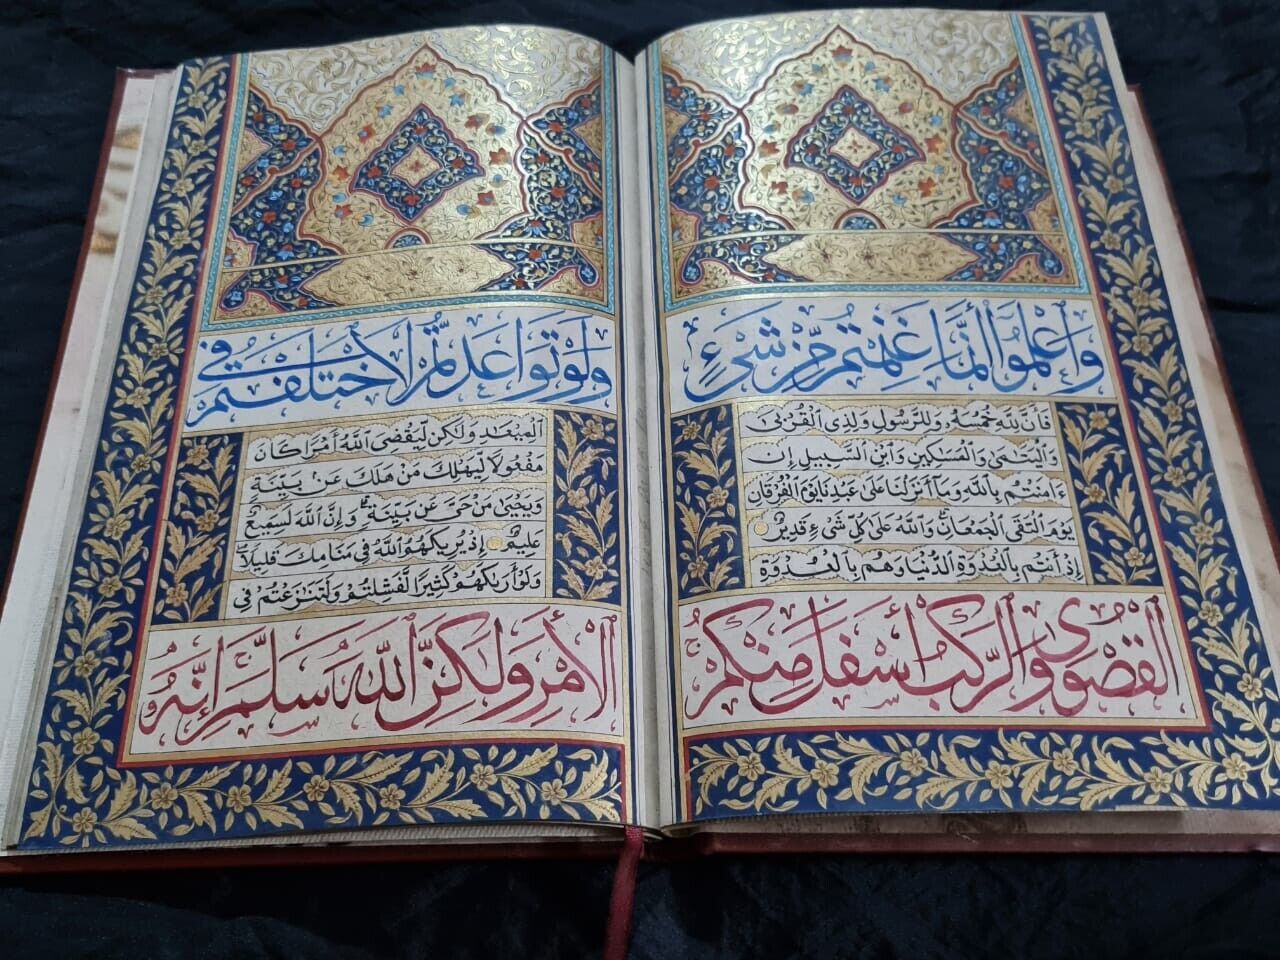 وَاعْلَمُوا أَنَّمَا غَنِمْتُم مِّن شَيْءٍ
فَأَنَّ لِلَّهِ خُمُسَهُ وَلِلرَّسُولِ وَلِذِي الْقُرْبَىٰ
وَالْيَتَٰمَىٰ وَالْمَسَٰكِينِ وَابْنِ السَّبِيلِ إِن
كُنتُمْ ءَامَنتُم بِاللَّهِ وَمَا أَنزَلْنَا عَلَىٰ عَبْدِنَا يَوْمَ الْفُرْقَانِ
يَوْمَ الْتَقَى الْجَمْعَانِ وَاللَّهُ عَلَىٰ كُلِّ شَيْءٍ قَدِيرٌ
إِذْ أَنتُم بِالْعُدْوَةِ الدُّنْيَا وَهُم بِالْعُدْوَةِ
الْقُصْوَىٰ وَالرَّكْبُ أَسْفَلَ مِنكُمْ
وَلَوْ تَوَاعَدتُّمْ لَاخْتَلَفْتُمْ فِي
الْمِيعَٰدِ وَلَٰكِن لِّيَقْضِيَ اللَّهُ أَمْرًا كَانَ
مَفْعُولًا لِّيَهْلِكَ مَنْ هَلَكَ عَن بَيِّنَةٍ
وَيَحْيَىٰ مَنْ حَيَّ عَن بَيِّنَةٍ وَإِنَّ اللَّهَ لَسَمِيعٌ
عَلِيمٌ إِذْ يُرِيكَهُمُ اللَّهُ فِي مَنَامِكَ قَلِيلًا
وَلَوْ أَرَىٰكَهُمْ كَثِيرًا لَّفَشِلْتُمْ وَلَتَنَٰزَعْتُمْ فِي
الْأَمْرِ وَلَٰكِنَّ اللَّهَ سَلَّمَ إِنَّهُ